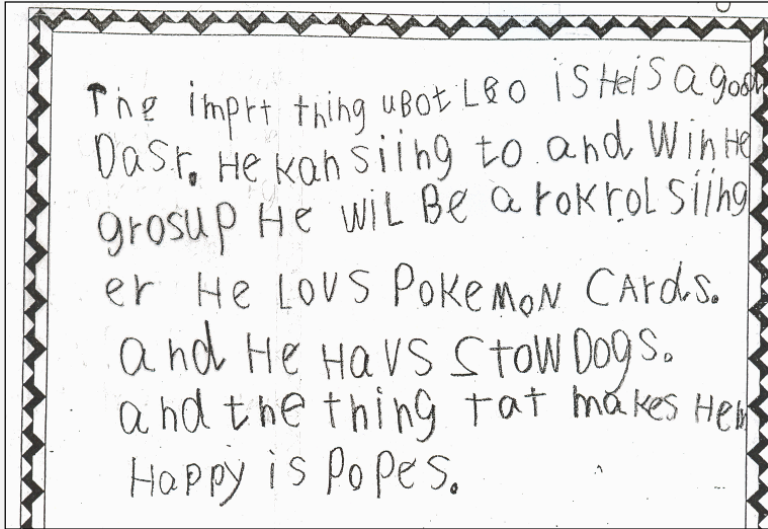 The imprt thing uBot LEO iS HeiS a good
DaSr. He kan Siing to and Win He
grosup He WiL Be a rokrol Siing
er He LOVS POKeMoN CArds.
and He HaVS StOW DOgS.
and the thing tat makes Hem
Happy is PoPeS.